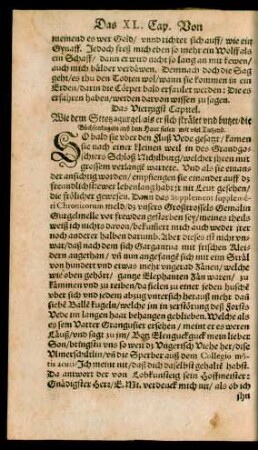 Das XL. Cap. Von
meinend es wer Gold/ vnnd richtet sich auff/ wie ein
Gynaff. Jedoch freß mich eben so mehr ein Wolff als
ein Schaff/ dann er wird nicht so lang an mir kewen/
auch mich bälder verdäwen. Demnach doch die Sag
geht/ es thu den Todten wol/ wann sie kommen in ein
Erden/ darin die Cörper bald erfaulet werden: Die es
erfahren haben/ werden darvon wissen zu sagen.
Das Viertzigst Capitel.
Wie dem Strozagurgel als er sich strälet vnd butzet/ die
Büchsenkugeln auß dem Haar fielen mit viel Tutzend.
SO bald sie vber den Fluß Vede gesetzt/ kamen
sie nach einer kleinen weil in des Grandgo-
schiers Schloß Vichilburg/ welcher ihren mit
grossem verlangē wartete. Vnd als sie einan-
der ansichtig worden/ empfiengen sie einander auff dz
freundlichst
die frölicher geweßt. Dann das Supplement supplemē-
ti Chronicorum meldt
Gurgelmelte vor frewden gestorben sey/ meines theils
weiß ich nichts davon/ bekümmert mich auch weder jrer
noch anderer halben darumb. Aber dieses ist nicht vn-
war/ daß nach dem sich Gargantua mit frischen Klei-
dern angethan/ vñ nun angefangē sich mit ein Sträl
von hundert vnd etwas mehr vngerad Känen/ welche
wie oben gehört/ gantze Elephanten Zän waren/ zu
kämmen vnd zu reiben/ da fielen zu einer jeden husche
vber sich vnd jedem abzug vntersich herauß mehr dañ
siebē Balle kugeln/ welche im in zerstörung deß Forsts
Vede im langen haar behangen geblieben. Welchs als
es sem Vatter Grangusier ersehen/ meint er es weren
Läuß/ vnd sagt zu jm/
Son/ bringstu vns so weit dz Vngerisch Viehe her/ dise
Vlmerschätlin/ vñ die Sperber auß dem Collegio mō-
tis acuti: Ich meint nit/ daß du daselbst gehalt hebst.
Da antwort der von Lobkündig sein Hoffmeister:
Gnädigster Herr/ E. M. verdenck mich nit/ als ob ich
jhn